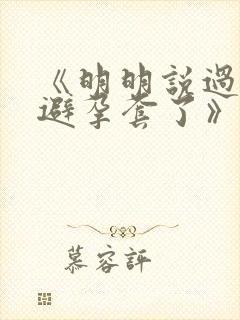 《明明説過
避孕套了》
慕容評